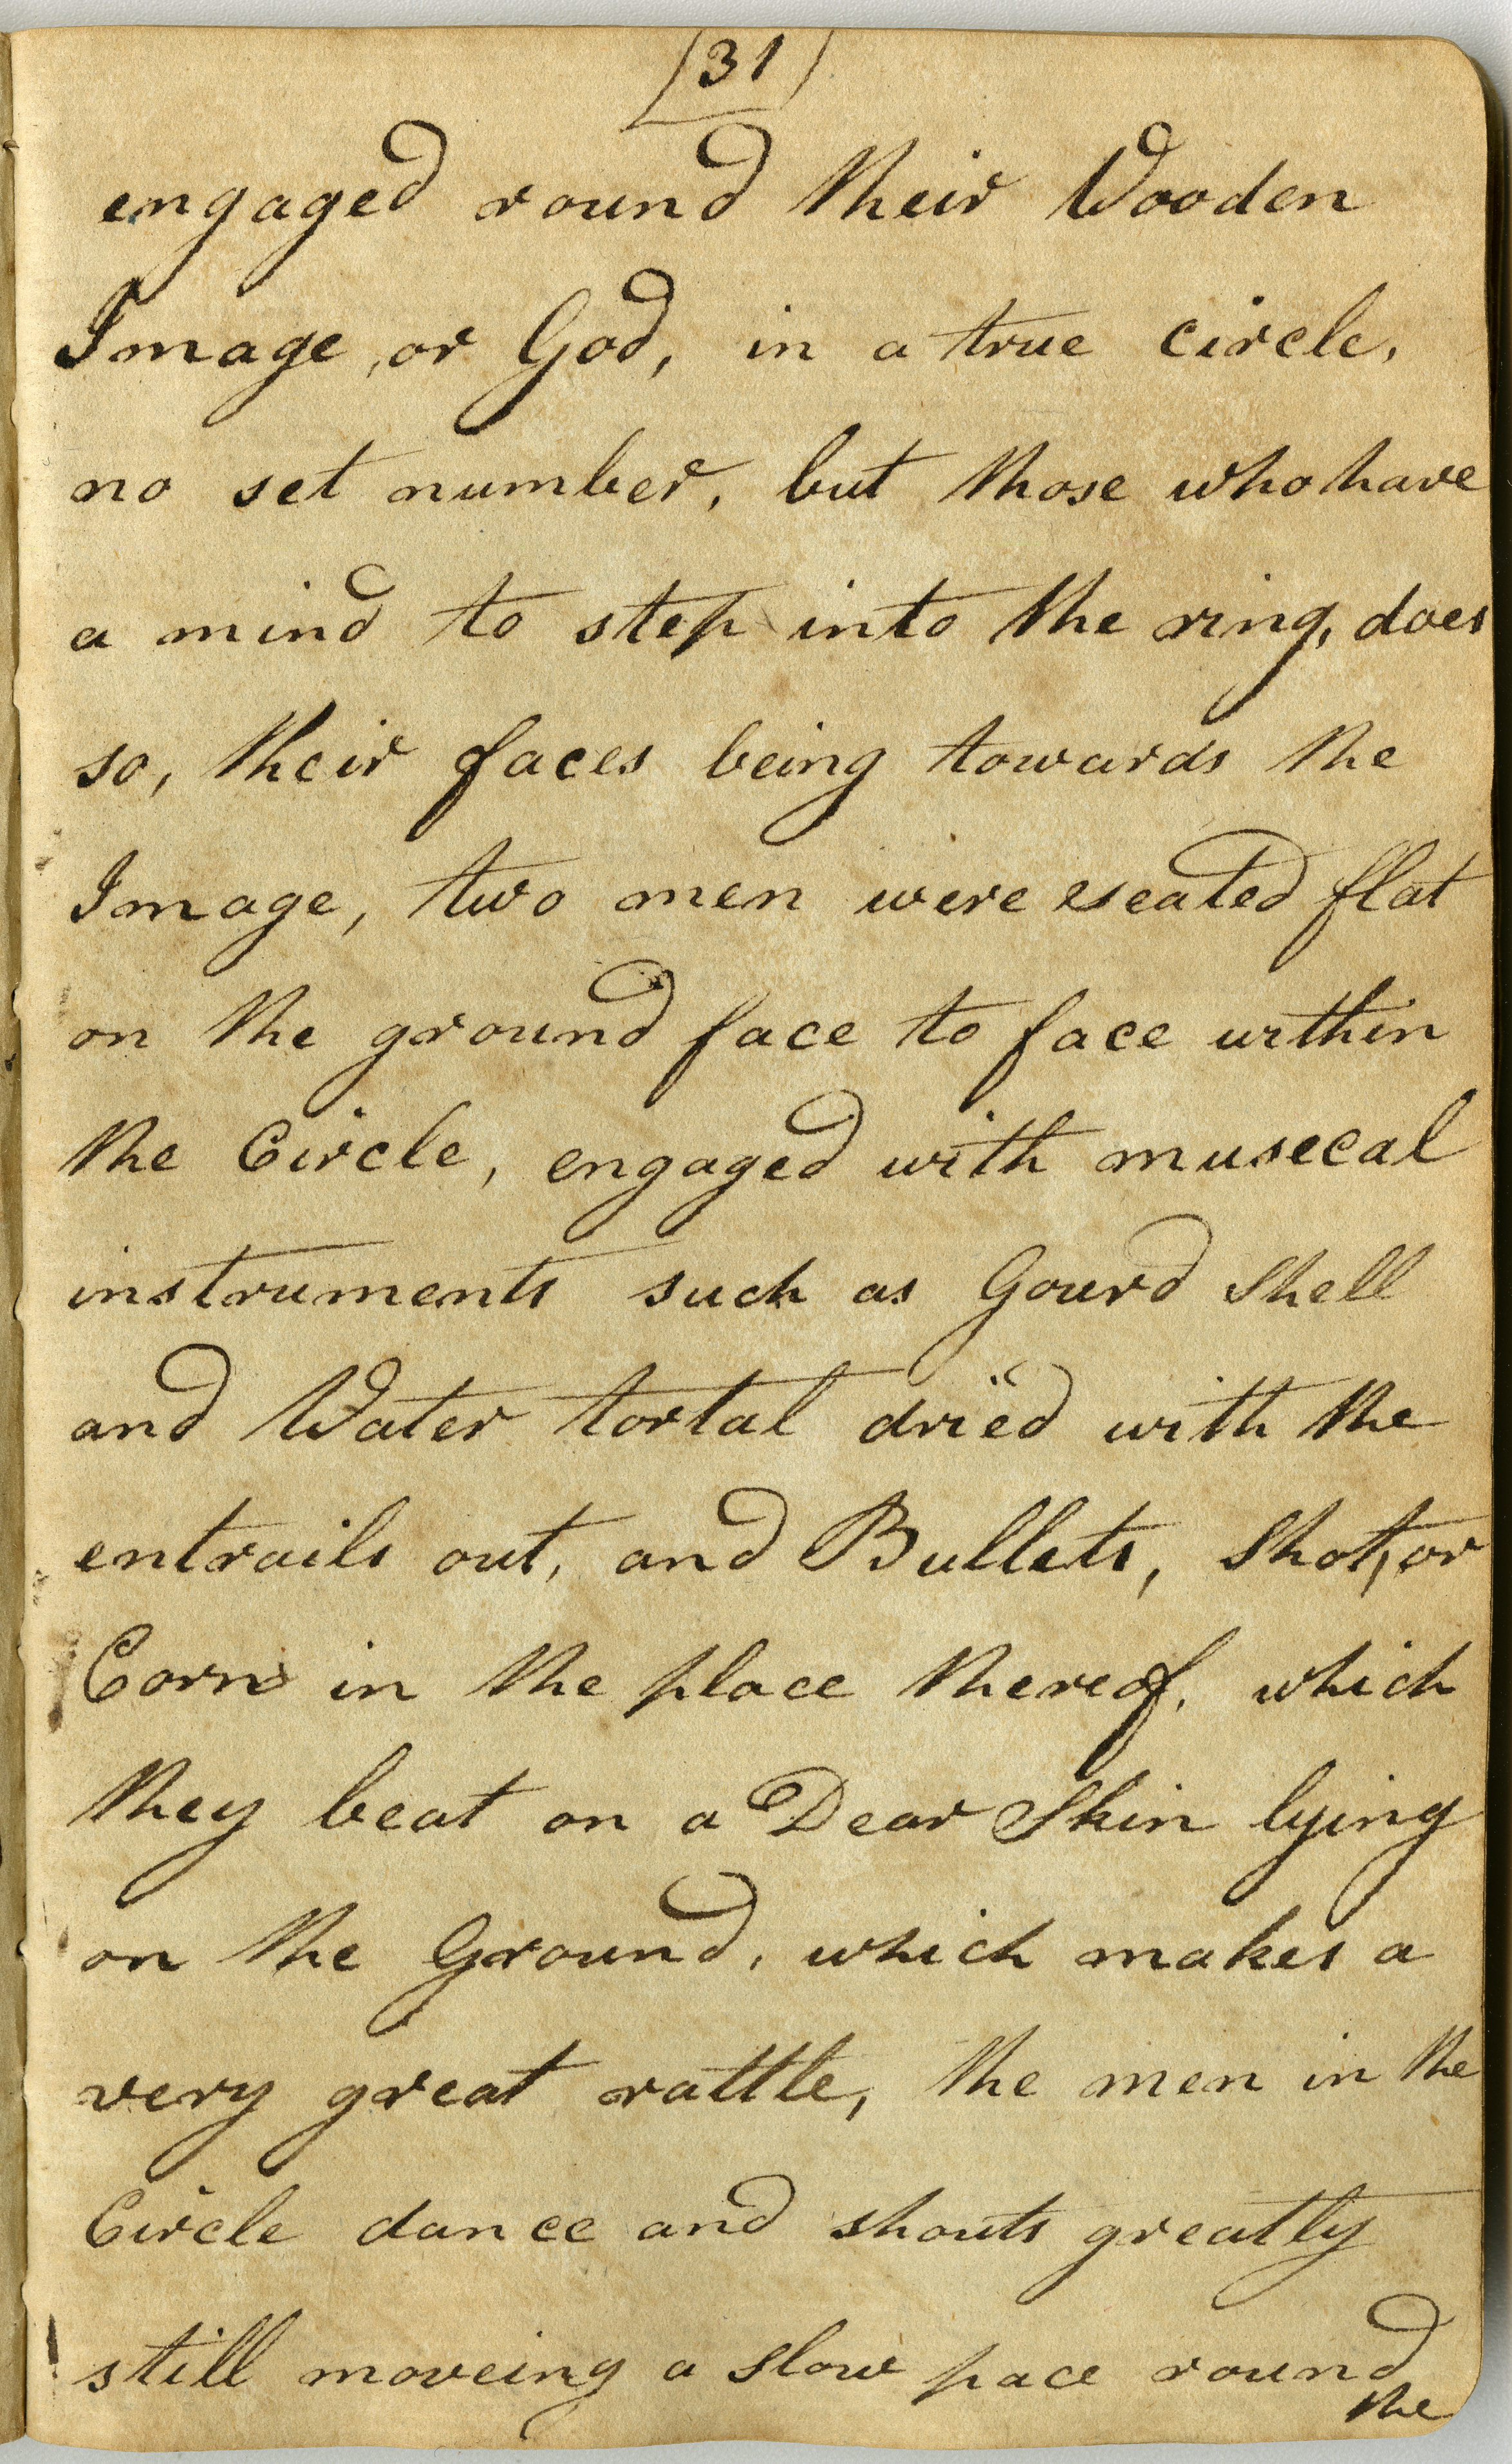 (31)
engaged round their Wooden
Image, or God, in a true circle,
no set number, but those who have
a mind to step into the ring, does
so, their faces being towards the
Image, two men were seated flat
on the ground face to face within
the Circle, engaged with musecal
instruments such as Gourd Shell
and Water tortal dried with the
entrails out, and Bullets, Shot, or
Corn in the place thereof, which
they beat on a Dear Skin lying
on the Ground, which makes a
very great rattle, the men in the
Circle dance and shouts greatly
still moveing a slow pace round
the